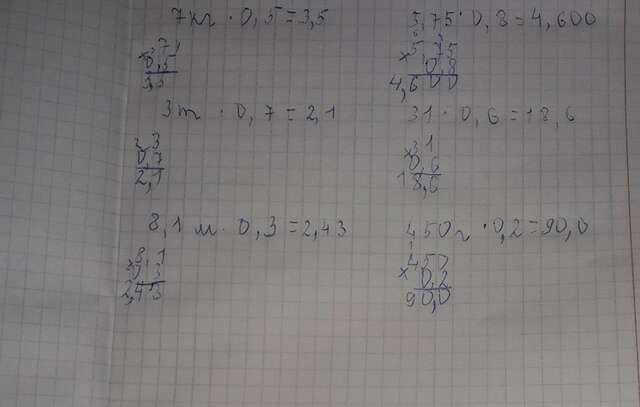 7кг · 0,5 = 3,5
× 7
0,5
3,5
3т · 0,7 = 2,1
× 3
0,7
2,1
8,1 м · 0,3 = 2,43
× 8,1
0,3
2,43
5,75 · 0,8 = 4,600
× 5,75
0,8
4,600
31 · 0,6 = 18,6
× 31
0,6
18,6
450г · 0,2 = 90,0
× 450
0,2
90,0